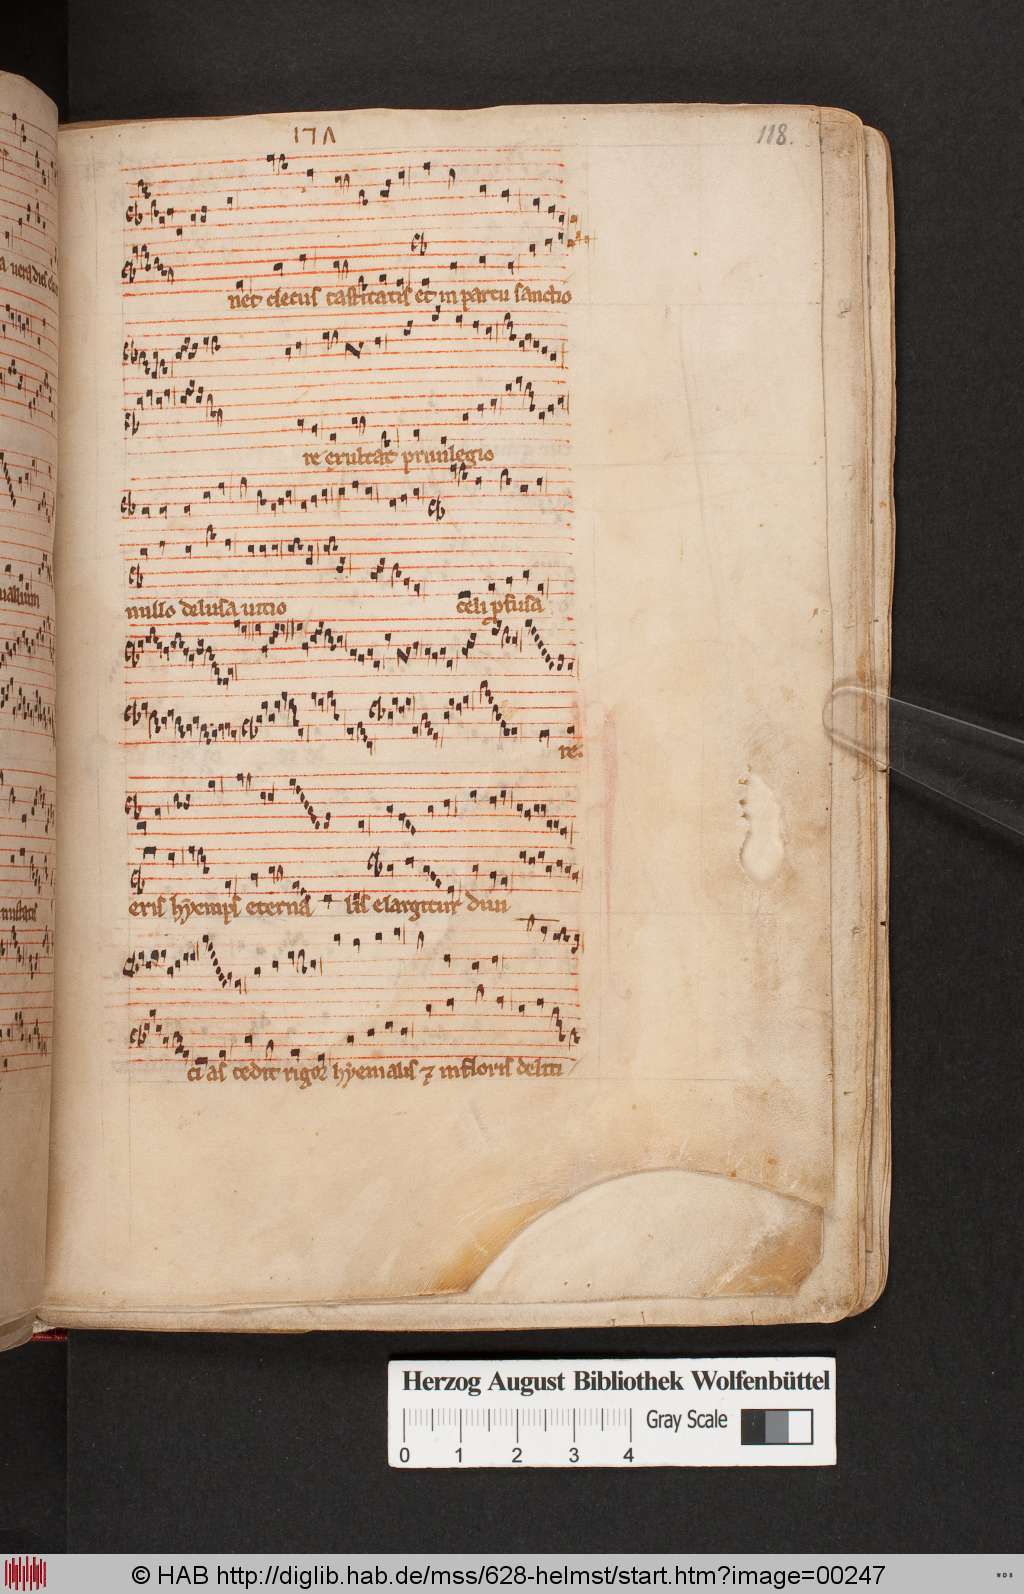 178
118.
net decus castitatis et in partu sanctio
re exultat privilegio
nullo delusa vitio celi
re.
eris hyemps eterna lis elargitur divi
ci as cedit rigor hyemalis et in floris deliti
Herzog August Bibliothek Wolfenbüttel
Gray Scale
0 1 2 3 4
© HAB http://diglib.hab.de/mss/628-helmst/start.htm?image=00247